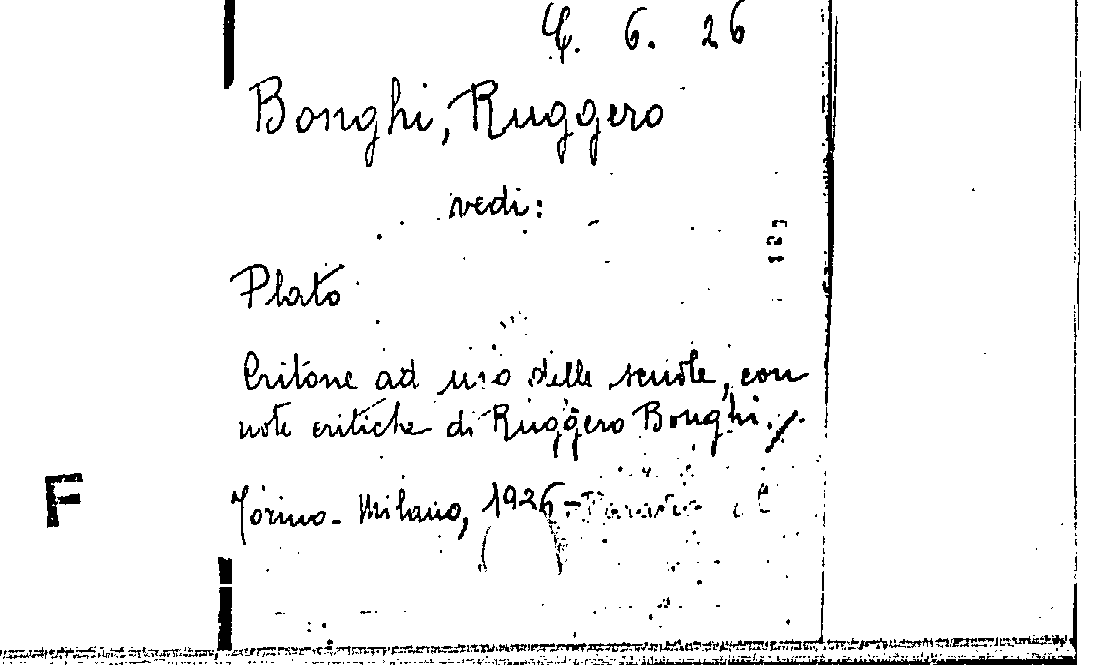 4. 6. 26
Bonghi, Ruggero
vedi:
Plato
Critone ad uso delle scuole, con
note critiche di Ruggero Bonghi.
F
Torino - Milano, 1926 -